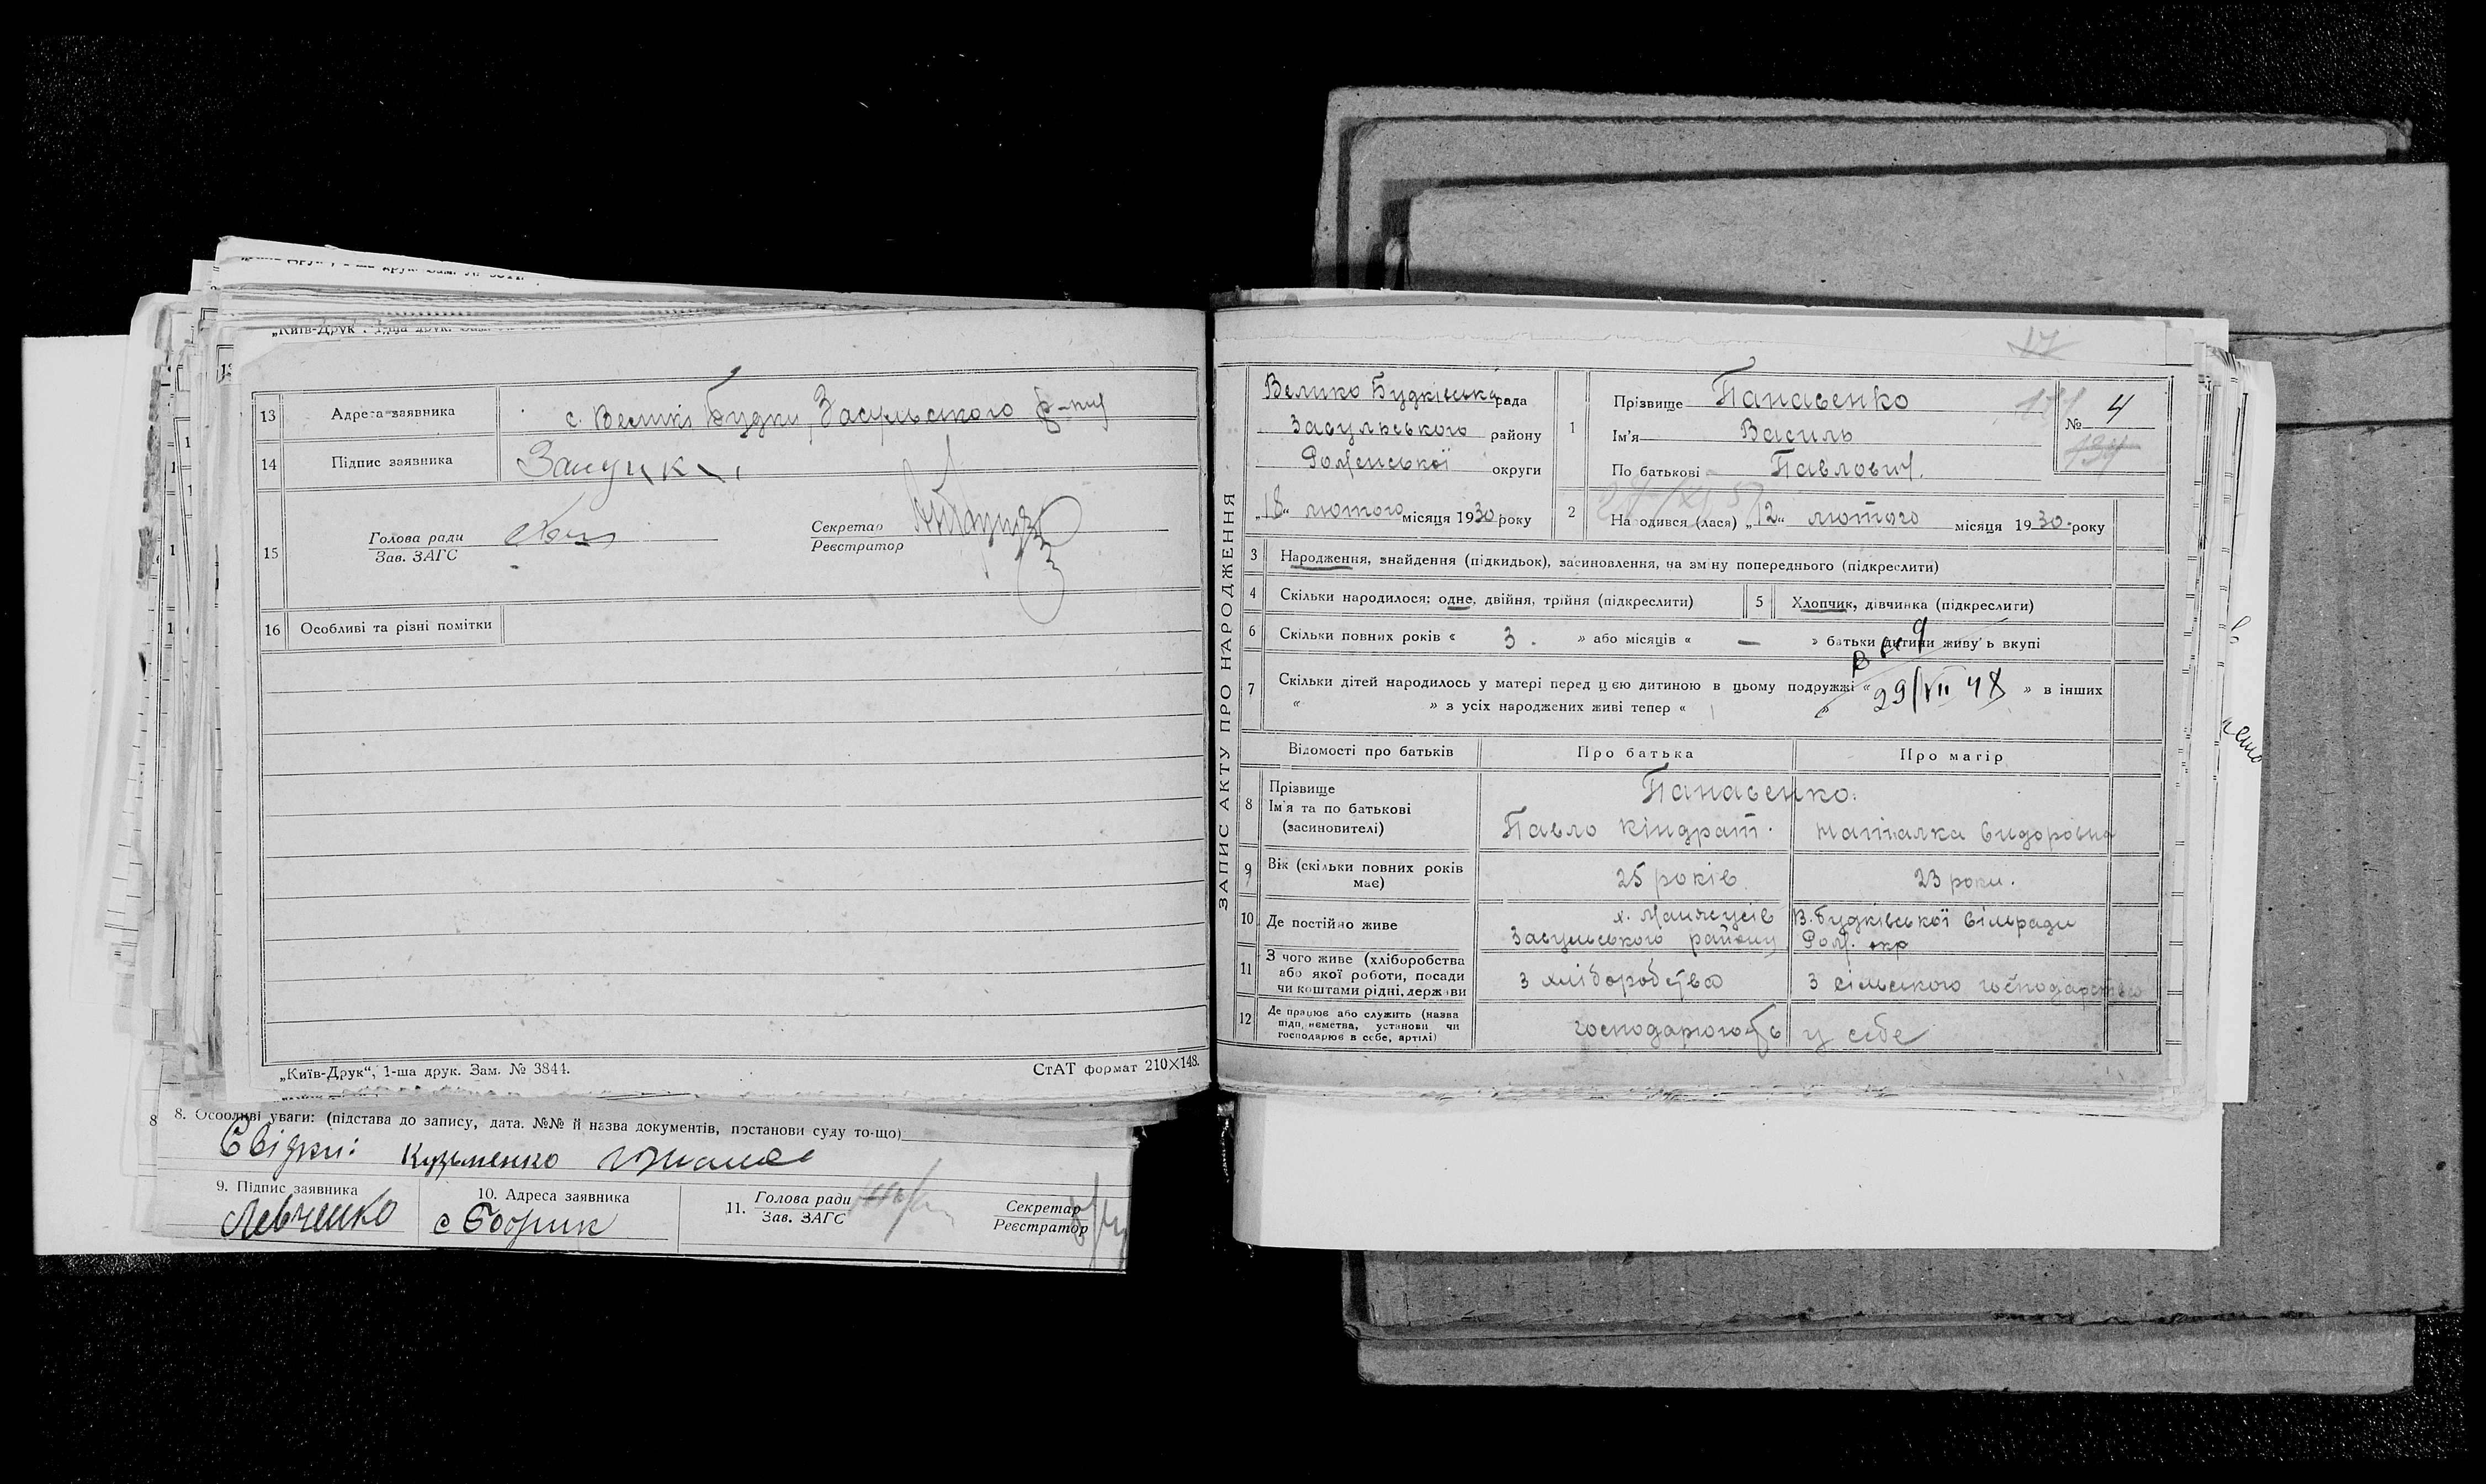 „Київ-Друк", 1-ша друк. Зам.
13 Адреса заявника с. Великі Будки, Засульського р-ну
14 Підпис заявника
15 Голова ради
Зав. ЗАГС
Секретар
Реєстратор
16 Особливі та різні помітки
„Київ-Друк", 1-ша друк. Зам. № 3844.
СтАТ формат 210×148.
8. Особливі уваги: (підстава до запису, дата. №№ й назва документів, постанови суду то-що)
Свідки: Кузьменко
9. Підпис заявника
Левченко
10. Адреса заявника
с Бобрик
11. Голова ради
Зав. ЗАГС
Секретар
Реєстратор
17
ЗАПИС АКТУ ПРО НАРОДЖЕННЯ
Велико Будківська рада
Засульського району
Роменської округи
„18" лютого місяця 1930 року
1 Прізвище Панасенко
Ім'я Василь
По батькові Павлович.
№ 4
2 Народився (лася) „12" лютого місяця 1930 року
3 Народження, знайдення (підкидьок), засиновлення, на зміну попереднього (підкреслити)
4 Скільки народилося: одне, двійня, трійня (підкреслити)
5 Хлопчик, дівчинка (підкреслити)
6 Скільки повних років « 3 . » або місяців « — » батьки дитини живуть вкупі
7 Скільки дітей народилось у матері перед цією дитиною в цьому подружжі « » в інших
« » з усіх народжених живі тепер « »
29/VII 48
Відомості про батьків
Про батька
Про матір
8 Прізвище
Ім'я та по батькові
(засиновителі)
Панасенко.
Павло Кіндрат.
Наталка Сидоровна
9 Вік (скільки повних років має)
25 років
23 роки.
10 Де постійно живе
Засульського району
В. Будківської сільради
Ром. окр
11 З чого живе (хліборобства
або якої роботи, посади
чи коштами рідні, держави
З хліборобства
З сільського господарства
12 Де працює або служить (назва
підприємства, установи чи
господарює в себе, артілі)
господарюють у себе